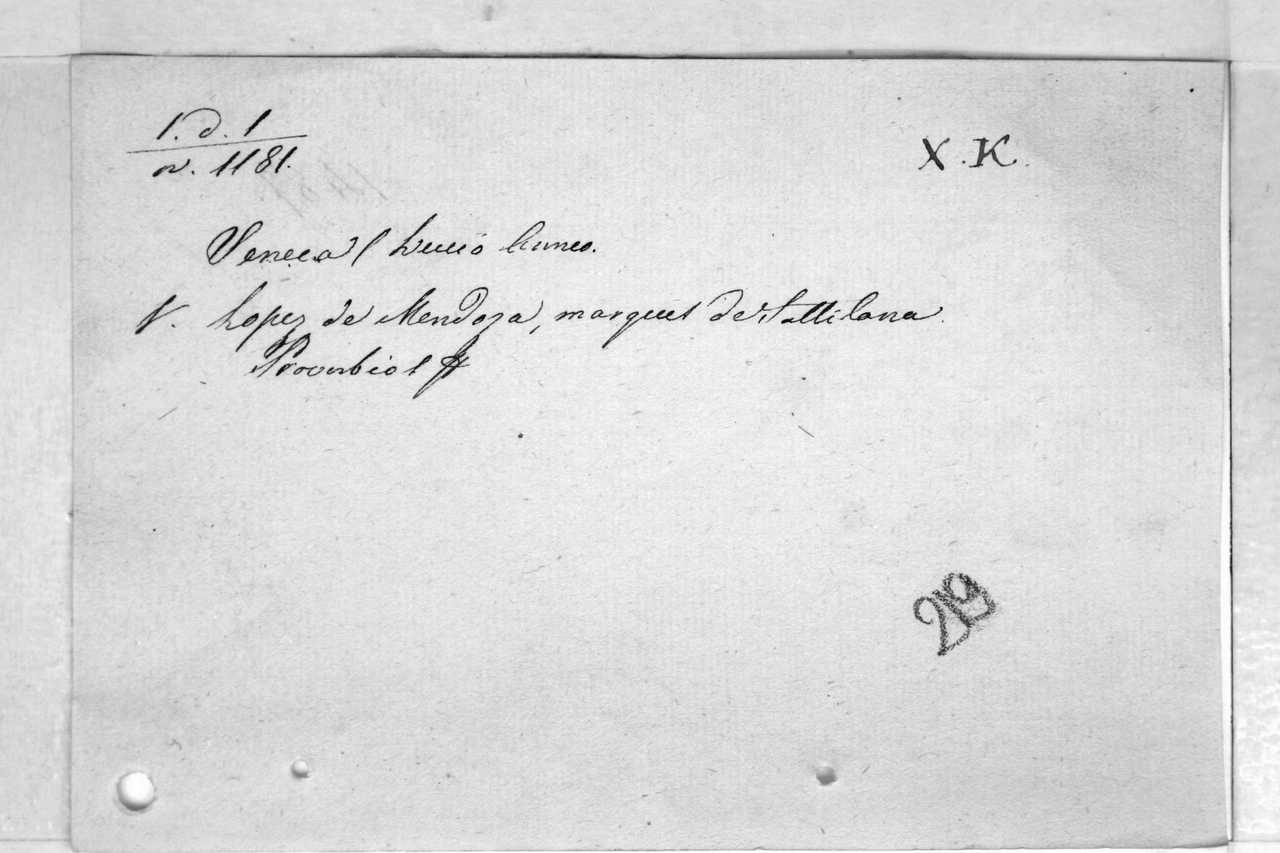 1. d. 1
n. 1181.
X. K.
Seneca (Lucio Anneo.
V. Lopez de Mendoza, marques de Sattilana.
Proverbios #